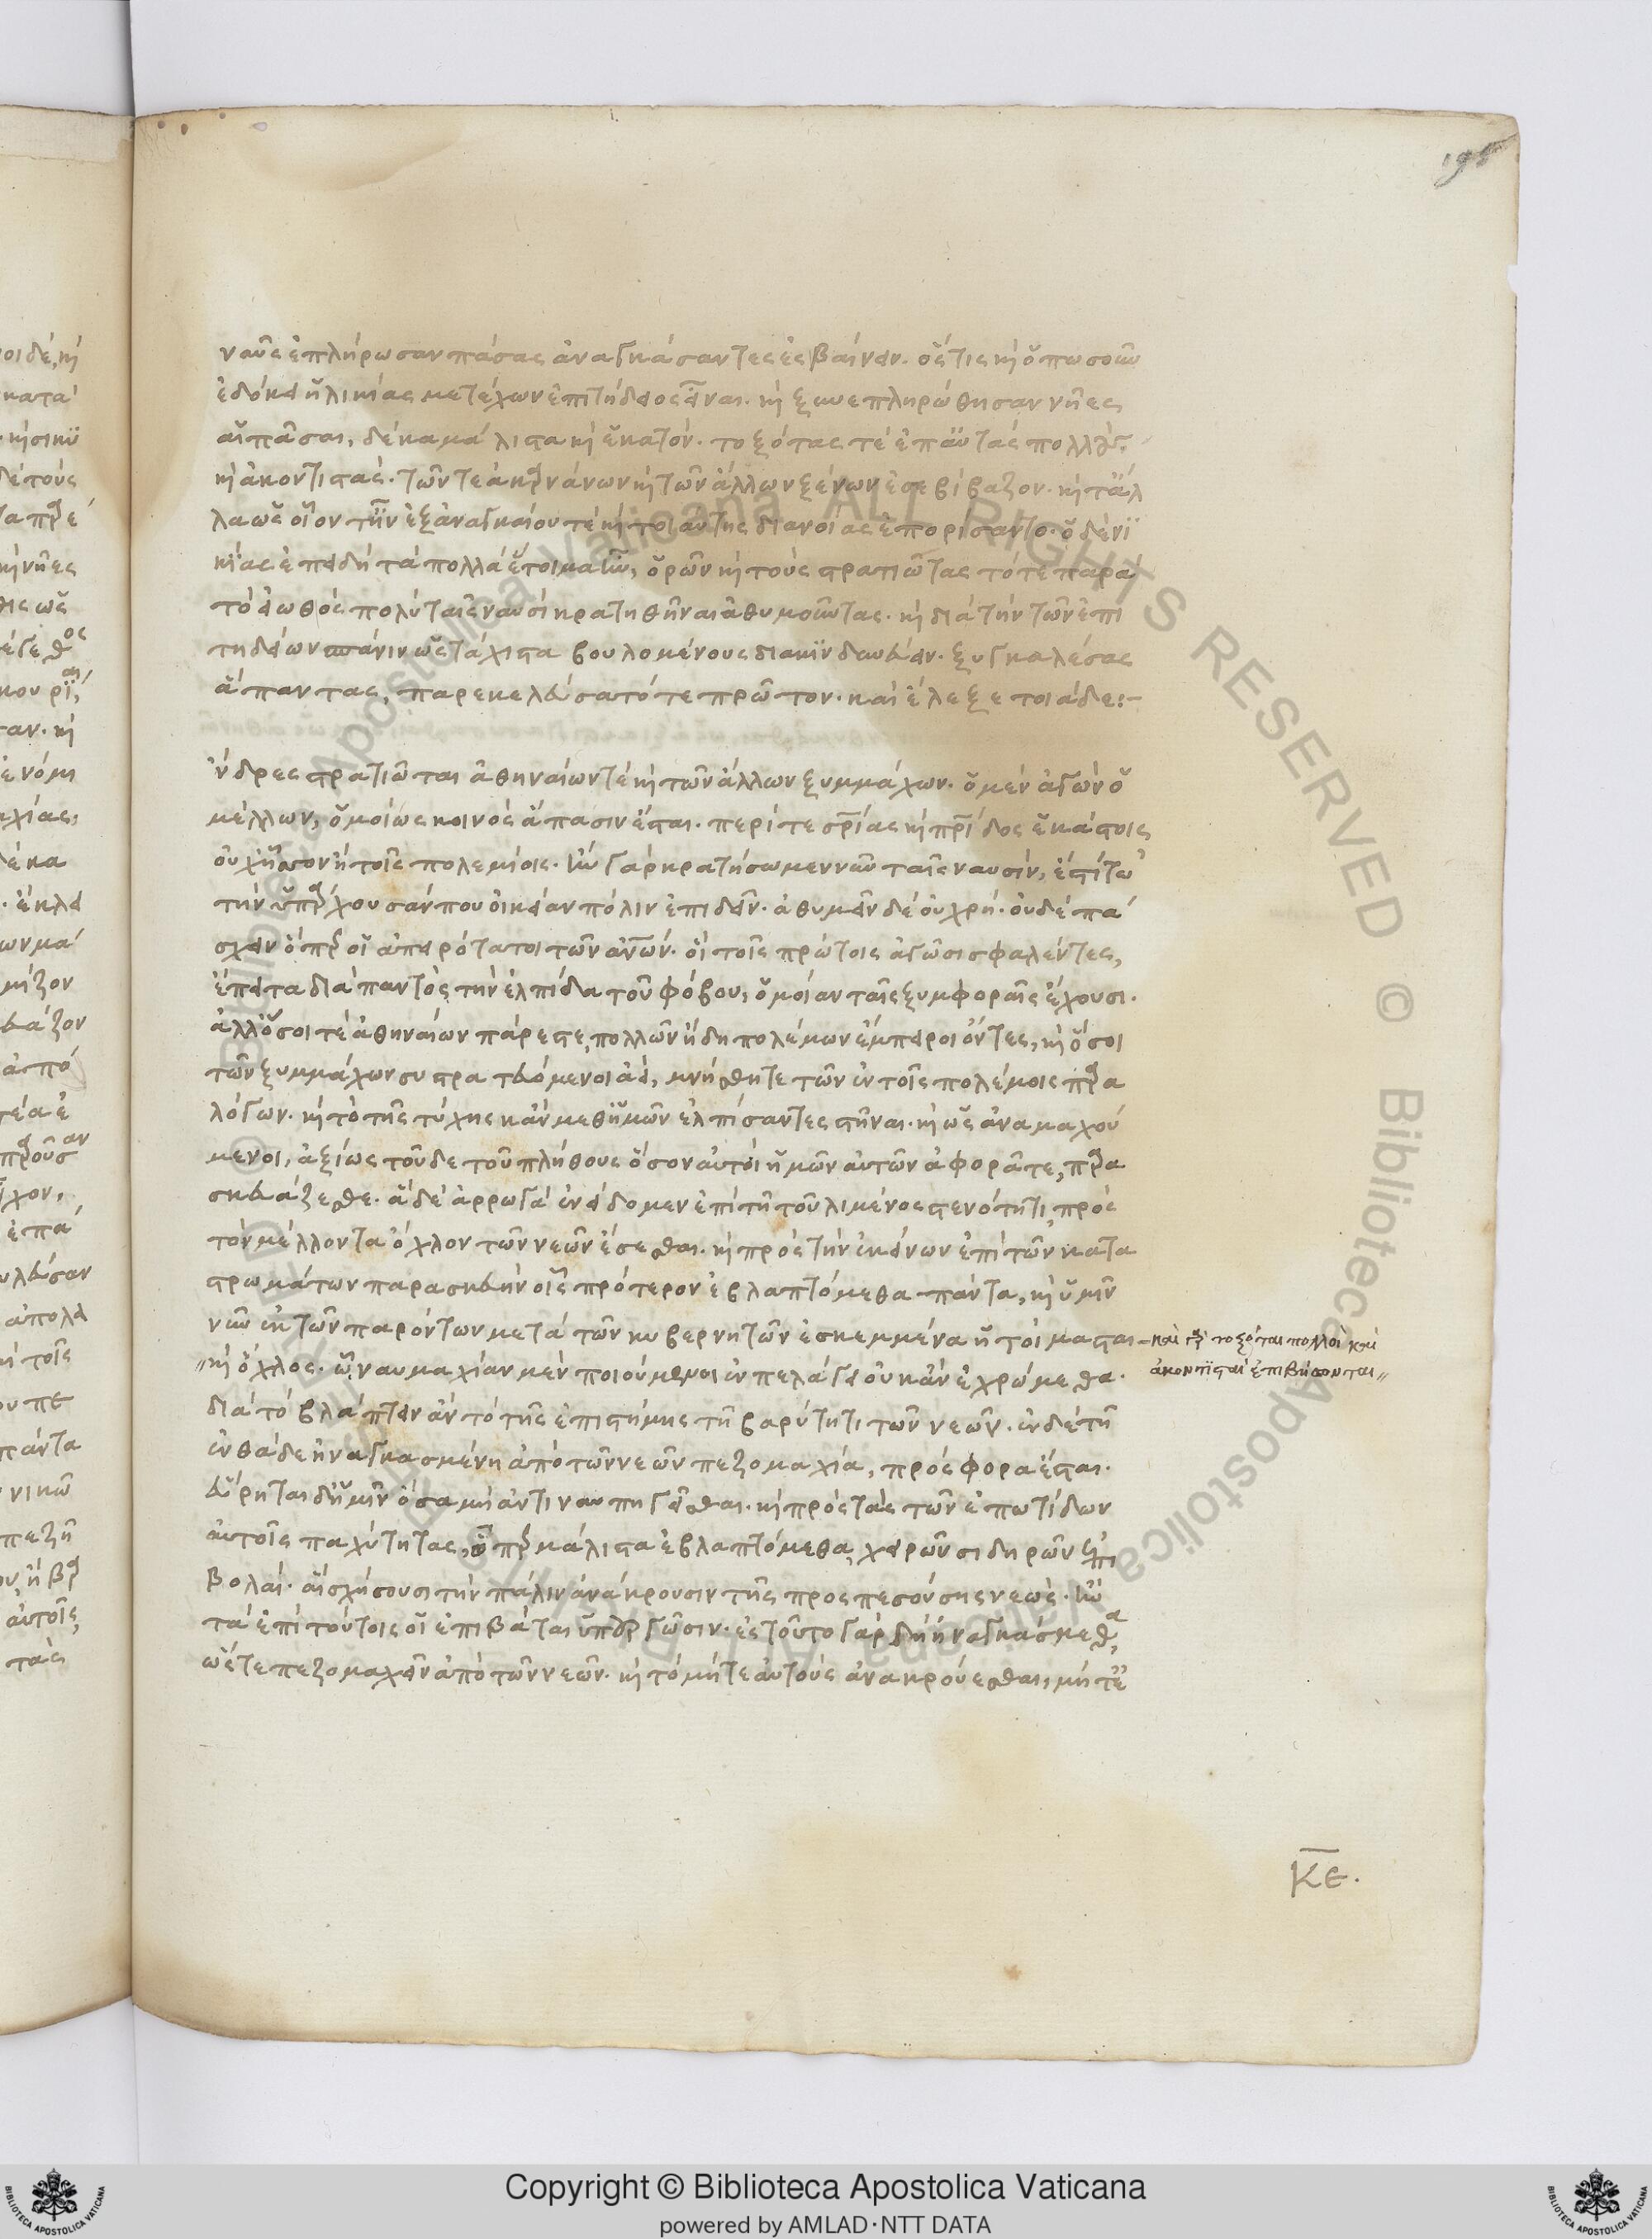 198
ναῦς ἐπλήρωσαν πάσας ἀναγκάσαντες ἐς βαίνειν. ὅςτις κὴ ὅπωσοῦν
ἐδόκει ἡλικίας μετέχων ἐπιτήδειος εἶναι. κὴ ξυνεπληρώθησαν νῆες
αἱ πᾶσαι, δέκα μάλιστα κὴ ἑκατόν. τοξότας τέ ἐπ' αὐτὰς πολλοὺς
κὴ ἀκοντιστάς. τῶν τε ἀκαρνάνων κὴ τῶν ἄλλων ξένων ἐσεβίβαζον. κὴ τἆλ
λα ὡς οἷόν τ' ἦν ἐξ ἀναγκαίου τὲ κὴ τοιαύτης διανοίας ἐπορίσαντο. ὁ δὲ νι
κίας ἐπειδὴ τὰ πολλὰ ἕτοιμα ἦν, ὁρῶν κὴ τοὺς στρατιώτας τότε παρὰ
τὸ εἰωθὸς πολὺ ταῖς ναυσὶ κρατηθῆναι ἀθυμοῦντας. κὴ διὰ τὴν τῶν ἐπι
τηδείων σπάνιν ὡς τάχιστα βουλομένους διακινδυνεύειν. ξυγκαλέσας
ἅπαντας, παρεκελεύσατό τε πρῶτον. καὶ ἔλεξε τοιάδε:–
ἄνδρες στρατιῶται ἀθηναίων τὲ κὴ τῶν ἄλλων ξυμμάχων. ὁ μὲν ἀγὼν ὁ
μέλλων, ὁμοίως κοινὸς ἅπασιν ἔσται. περί τε σωτηρίας κὴ πατρίδος ἑκάστοις
οὐχ ἧσσον ἢ τοῖς πολεμίοις. ἢν γὰρ κρατήσωμεν νῦν ταῖς ναυσίν, ἔστι τῳ
τὴν ὑπάρχουσάν που οἰκείαν πόλιν ἐπιδεῖν. ἀθυμεῖν δὲ οὐ χρή. οὐδὲ πά
σχειν ὅπερ οἱ ἀπειρότατοι τῶν ἀνθρώπων. οἳ τοῖς πρώτοις ἀγῶσι σφαλέντες,
ἔπειτα διὰ παντὸς τὴν ἐλπίδα τοῦ φόβου, ὁμοίαν ταῖς ξυμφοραῖς ἔχουσι.
ἀλλ' ὅσοι τὲ ἀθηναίων πάρεστε, πολλῶν ἤδη πολέμων ἔμπειροι ὄντες, κὴ ὅσοι
τῶν ξυμμάχων συστρατευόμενοι ἀεί, μνήσθητε τῶν ἐν τοῖς πολέμοις παρα
λόγων. κὴ τὸ τῆς τύχης κἂν μεθ' ἡμῶν ἐλπίσαντες στῆναι. κὴ ὡς ἀναμαχού
μενοι, ἀξίως τοῦδε τοῦ πλήθους ὅσον αὐτοὶ ἡμῶν αὐτῶν ἀφορᾶτε, παρα
σκευάζεσθε. ἃ δὲ ἀρρωγὰ ἐνείδομεν ἐπὶ τῇ τοῦ λιμένος στενότητι, πρὸς
τὸν μέλλοντα ὄχλον τῶν νεῶν ἔσεσθαι. κὴ πρὸς τὴν ἐκείνων ἐπὶ τῶν κατα
στρωμάτων παρασκευὴν οἷς πρότερον ἐβλαπτόμεθα πάντα, κὴ ὑμῖν
νῦν ἐκ τῶν παρόντων μετὰ τῶν κυβερνητῶν ἐσκεμμένα ἡτοίμασται – καὶ γὰρ τοξόται πολλοὶ καὶ
ἀκοντισταὶ ἐπιβήσονται,,
,,κὴ ὄχλος. ᾧ ναυμαχίαν μὲν ποιούμενοι ἐν πελάγει οὐκ ἂν ἐχρώμεθα.
διὰ τὸ βλάπτειν ἂν τὸ τῆς ἐπιστήμης τῇ βαρύτητι τῶν νεῶν. ἐν δὲ τῇ
ἐνθάδε ἠναγκασμένῃ ἀπὸ τῶν νεῶν πεζομαχίᾳ, πρόσφορα ἔσται.
εὕρηται δ' ἡμῖν ὅσα μὴ ἀντιναυπηγεῖσθαι. κὴ πρὸς τὰς τῶν ἐπωτίδων
αὐτοῖς παχύτητας, ᾧπερ μάλιστα ἐβλαπτόμεθα, χειρῶν σιδηρῶν ἐπι
βολαί. αἳ σχήσουσι τὴν πάλιν ἀνάκρουσιν τῆς προσπεσούσης νεώς. ἢν
τὰ ἐπὶ τούτοις οἱ ἐπιβάται ὑπουργῶσιν. ἐς τοῦτο γὰρ δὴ ἠναγκάσμεθα,
ὥςτε πεζομαχεῖν ἀπὸ τῶν νεῶν. κὴ τὸ μήτε αὐτοὺς ἀνακρούεσθαι, μήτε
ΚΕ.
Copyright © Biblioteca Apostolica Vaticana
powered by AMLAD·NTT DATA